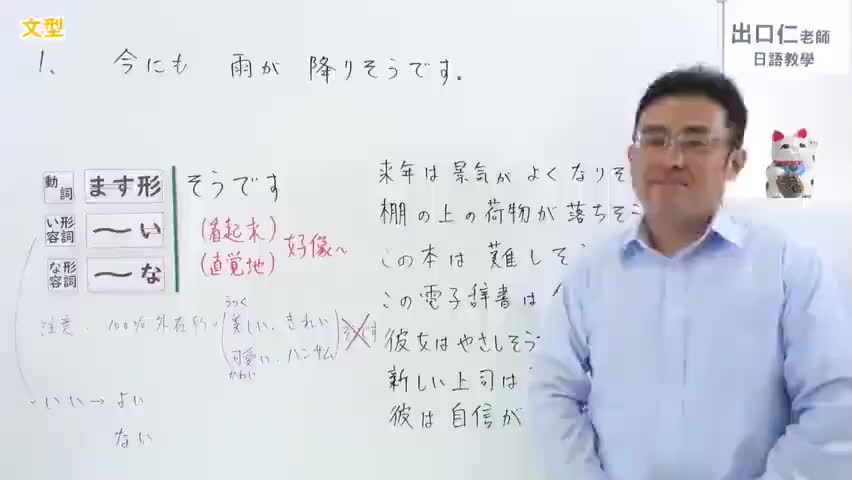 文型
出口仁老師
日語教學
1、 今にも 雨が 降りそうです。
動詞 ます形 そうです
い形容詞 〜い
な形容詞 〜な
(看起來)
(直覚地) 好像〜
注意、100%外在的
うつく
美しい、きれい
可愛い、ハンサム
かわい
そうです
いい→よい
ない
来年は景気がよくなりそ
棚の上の荷物が落ちそう
この本は難しそう
この電子辞書は
彼女はやさしそう
新しい上司は
彼は自信が